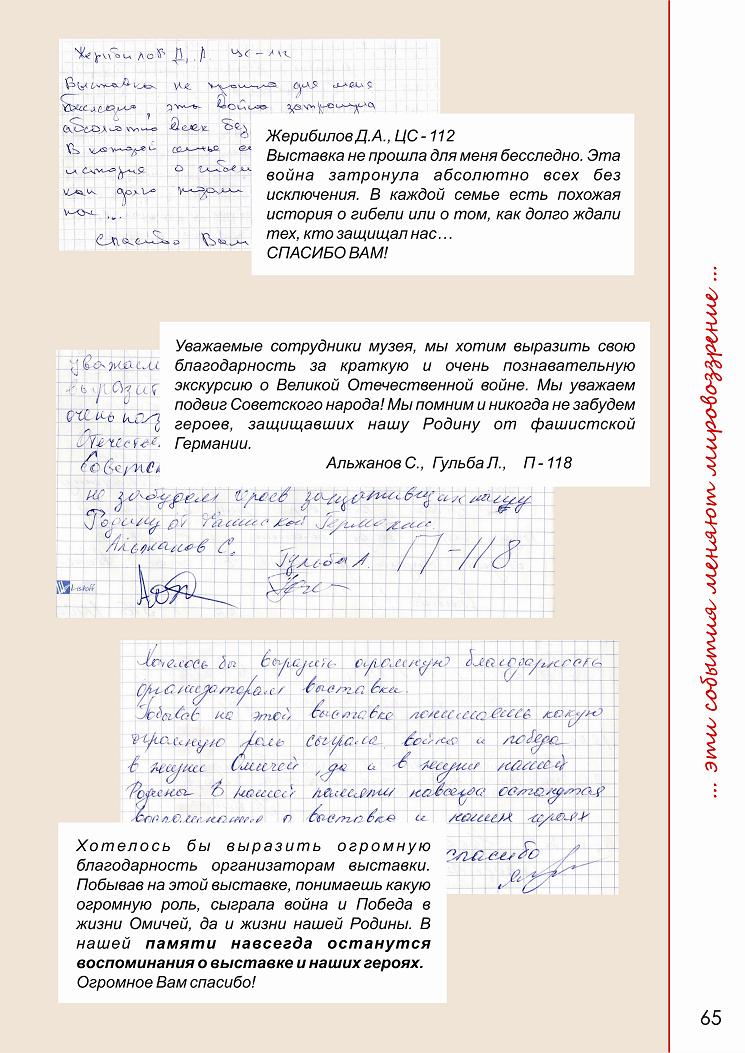 Жерибилов Д. А. ЦС-112
Выставка не прошла для меня
бесследно, эта война затронула
абсолютно всех без
В каждой семье
история о гибели
как долго ждали
нас...
Спасибо Вам
Жерибилов Д.А., ЦС - 112
Выставка не прошла для меня бесследно. Эта
война затронула абсолютно всех без
исключения. В каждой семье есть похожая
история о гибели или о том, как долго ждали
тех, кто защищал нас…
СПАСИБО ВАМ!
Уважаемые сотрудники музея, мы хотим выразить свою
благодарность за краткую и очень познавательную
экскурсию о Великой Отечественной войне. Мы уважаем
подвиг Советского народа! Мы помним и никогда не забудем
героев, защищавших нашу Родину от фашистской
Германии.
Альжанов С., Гульба Л., П - 118
уважаем
выразит
очень поз
Отечестве
Советск
не забудем героев защитивших нашу
Родину от Фашиской Германии.
Альжанов С.
Гульба Л. П-118
Listoff
Хотелось бы выразить огромную благодарность
организаторам выставки.
Побывав на этой выставке понимаешь какую
огромную роль сыграла война и победа
в жизни Омичей, да и в жизни нашей
Родины. В нашей памяти навсегда останутся
воспоминания о выставке и наших героях
спасибо
Хотелось бы выразить огромную
благодарность организаторам выставки.
Побывав на этой выставке, понимаешь какую
огромную роль, сыграла война и Победа в
жизни Омичей, да и жизни нашей Родины. В
нашей памяти навсегда останутся
воспоминания о выставке и наших героях.
Огромное Вам спасибо!
... эти события меняют мировоззрение ...
65